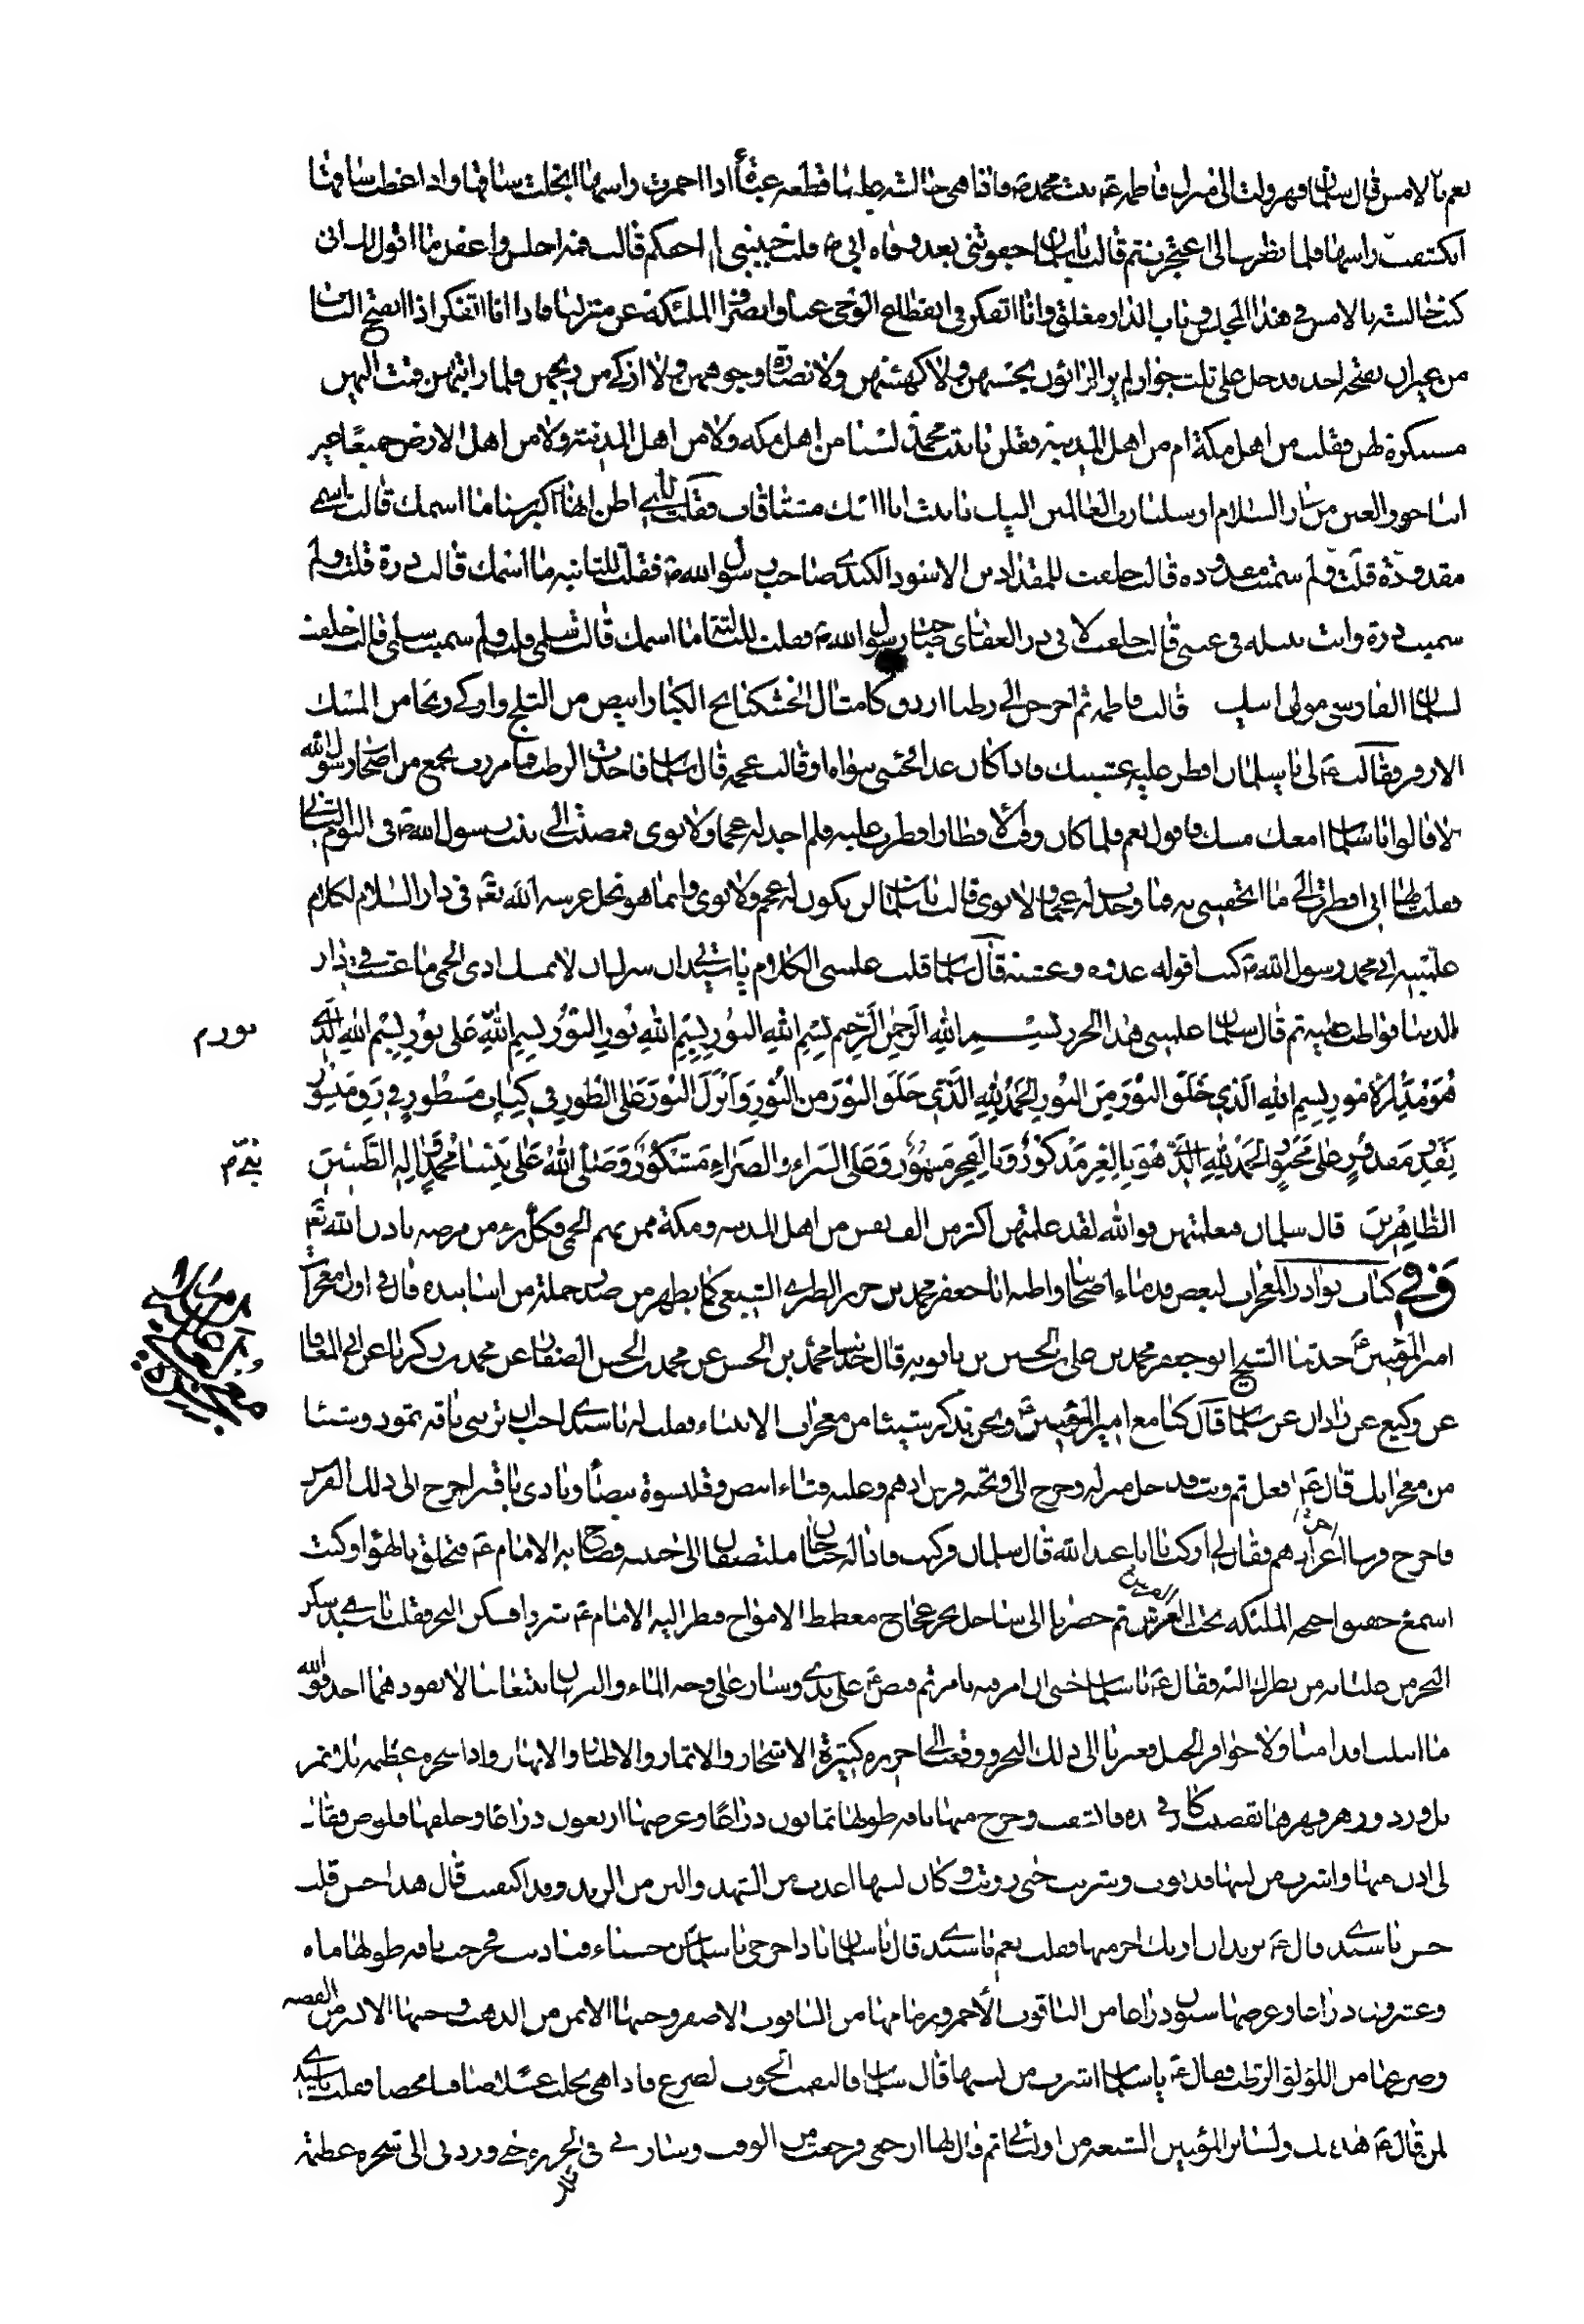 نعم بالامس قال سلمان فهرولت الى منزل فاطمة ع بنت محمد ص فاذا هي جالسة وعليها قطعة عباء اذا خمرت راسها انجلت ساقها واذا غطت ساقها
انكشف راسها فلما نظرت الى اعتجرت ثم قالت يا سلمان جفوتني بعد وفاة ابي ص قلت حبيبتي لم اجفكم قالت فمه اجلس واعقل ما اقول لك اني
كنت جالسة بالامس في هذا المجلس وباب الدار مغلق وانا اتفكر في انقطاع الوحي عنا وانصراف الملئكة عن منزلنا فاذا انا اتفكر اذا انفتح الباب
من غير ان يفتحه احد فدخل على ثلث جوار لم ير الراؤن بحسنهن ولا كهيئتهن ولا نضارة وجوههن ولا ازكى من ريحهن فلما رايتهن قمت اليهن
مستنكرة لهن فقلت من اهل مكة ام من اهل المدينة فقلن يا بنت محمد لسنا من اهل مكة ولا من اهل المدينة ولا من اهل الارض جميعا غير
اننا جوار من الحور العين من دار السلام ارسلنا رب العالمين اليك يا بنت محمد انا اليك مشتاقات فقلت للتي اظن انها اكبر سنا ما اسمك قالت اسمي
مقدودة قلت ولم سميت مقدودة قالت خلقت للمقداد بن الاسود الكندي صاحب رسول الله ص فقلت للثانية ما اسمك قالت ذرة قلت ولم
سميت ذرة وانت نبيلة في عيني قالت خلقت لابي ذر الغفاري صاحب رسول الله ص فقلت للثالثة ما اسمك قالت سلمى قلت ولم سميت سلمى قالت خلقت
لسلمان الفارسي مولى ابيك قالت فاطمة ثم اخرجن الي رطبا ازرق كامثال الخشكنانج الكبار ابيض من الثلج وازكى ريحا من المسك
الاذفر وقالت ع لي يا سلمان افطر عليه عشيتك فاذا كان غدا فجئني بنواه او قالت عجمه قال سلمان فاخذت الرطب فما مررت بجمع من اصحاب رسول الله
الا قالوا يا سلمان امعك مسك فاقول نعم فلما كان وقت الافطار افطرت عليه فلم اجد له عجما ولا نوى فمضيت الى بنت رسول الله ص في اليوم الثاني
فقلت لها اني افطرت على ما اتحفتني به فما وجدت له عجما ولا نوى قالت يا سلمان لن يكون له عجم ولا نوى وانما هو نخل غرسه الله تع في دار السلام لكلام
علمنيه ابي محمد رسول الله ص كنت اقوله غدوة وعشية قال سلمان قلت علميني الكلام يا سيدتي ان سرك ان لا يمسك اذى الحمى ما عشت في دار
الدنيا فواظب عليه ثم قال سلمان علمتني هذا الحرز بسم الله الرحمن الرحيم بسم الله النور بسم الله نور النور بسم الله على نور بسم الله الذي
نور م
هو مدبر الامور بسم الله الذي خلق النور من النور الحمد لله الذي خلق النور من النور وانزل النور على الطور في كتاب مسطور في رق منشور
بقدر مقدور على نبي محبور الحمد لله الذي هو بالعز مذكور وبالفخر مشهور وعلى السراء والضراء مشكور وصلى الله على سيدنا محمد واله الطيبين
بقدر م
الطاهرين قال سلمان فعلمتهن فوالله لقد علمتهن اكثر من الف نفس من اهل المدينة ومكة ممن بهم الحمى فكل برء من مرضه باذن الله تع
وفي كتاب نوادر المعجزات لبعض قدماء اصحابنا واظنه ابا جعفر محمد بن جرير الطبري الشيعي كما يظهر من صدر جملة من اسانيده قال في اول معجزات
امير المؤمنين ع حدثنا الشيخ ابو جعفر محمد بن علي بن الحسين بن بابويه قال حدثنا محمد بن الحسن عن محمد بن الحسن الصفار عن محمد بن زكريا عن ابي المعافا
عن وكيع عن زاذان عن سلمان قال كنا مع امير المؤمنين ع ونحن نذكر شيئا من معجزات الانبياء فقلت له يا سيدي احب ان تريني ناقة ثمود وشيئا
من معجزاتك قال ع افعل ثم وثب فدخل منزله وخرج الي وتحته فرس ادهم وعليه قباء ابيض وقلنسوة بيضاء ونادى يا قنبر اخرج الي ذلك الفرس
فاخرج فرسا اغر ادهم فقال لي اركب يا ابا عبد الله قال سلمان فركبت فاذا له جناحان ملتصقان الى جنبه فصاح به الامام ع فتحلق في الهواء وكنت
اسمع حفيف اجنحة الملئكة تحت العرش ثم حضرنا الى ساحل بحر عجاج مغطمط الامواج فنظر اليه الامام ع شزرا فسكن البحر فقلت يا سيدي سكن
البحر من غليانه من نظرك اليه فقال ع يا سلمان خشي ان امر فيه بامر ثم قبض ع على يدي وسار على وجه الماء والفرسان يتبعاننا لا يقودهما احد فوالله
ما ابتلت اقدامنا ولا حوافر الخيل فعبرنا الى ذلك البحر ووقعنا الى جزيرة كثيرة الاشجار والاثمار والاطيار والانهار واذا شجرة عظيمة بلا ثمر
بل ورد وزهر فهزها بقضيب كان في يده فانشقت وخرج منها ناقة طولها ثمانون ذراعا وعرضها اربعون ذراعا وخلفها قلوص فقال
لي ادن منها واشرب من لبنها فدنوت وشربت حتى رويت وكان لبنها اعذب من الشهد والين من الزبد وقد اكتفيت قال هذا حسن قلت
حسن يا سيدي قال ع تريد ان اريك احسن منها فقلت نعم يا سيدي قال يا سلمان ناد اخرجي يا حسناء فناديت فخرجت ناقة طولها مائة
وعشرون ذراعا وعرضها ستون ذراعا من الياقوت الاحمر وزمامها من الياقوت الاصفر وجنبها الايمن من الذهب وجنبها الايسر من الفضة
وضرعها من اللؤلؤ الرطب فقال ع يا سلمان اشرب من لبنها قال سلمان فالتقمت الضرع فاذا هي تحلب عسلا صافيا محضا فقلت يا سيدي هذه
لمن قال ع هذه لك ولسائر المؤمنين الشيعة من اوليائي ثم قال لها ارجعي فرجعت من الوقت وسار بي في تلك الجزيرة حتى ورد بي الى شجرة عظيمة